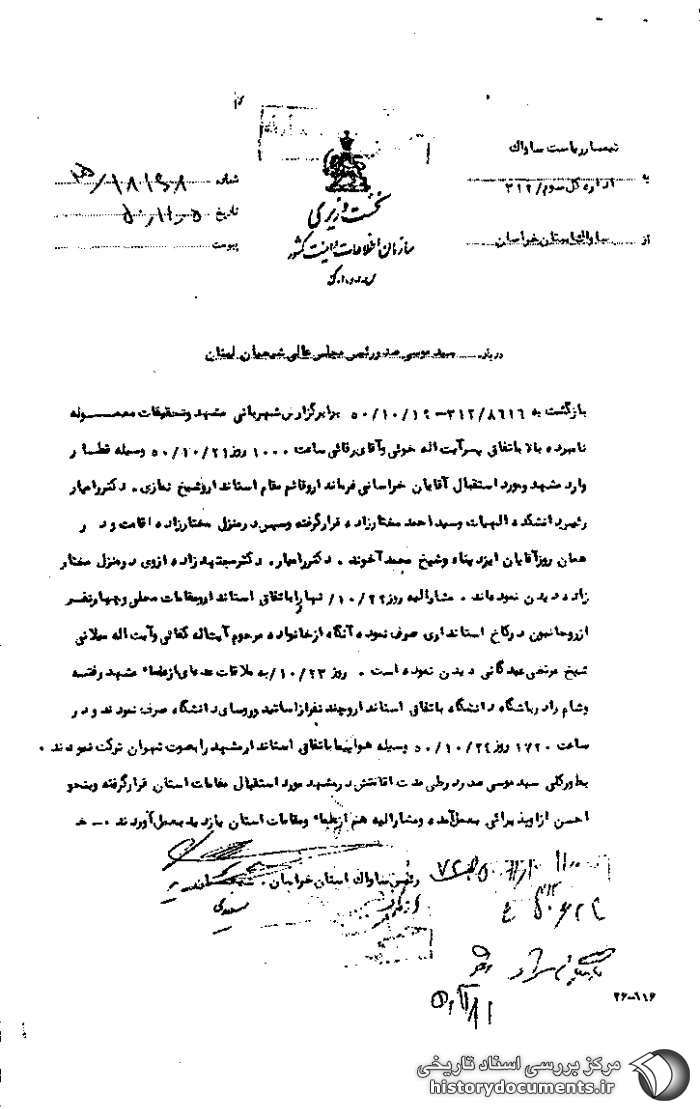 تیمسار ریاست ساواک
به اداره کل سوم/۳۱۲
از ساواک استان خراسان
نخست وزیری
سازمان اطلاعات و امنیت کشور
شماره
تاریخ
پیوست
درباره سید موسی صدر رئیس مجلس عالی شیعیان لبنان
بازگشت به ۳۱۲/۸۶۱۶-۵۰/۱۰/۱۹ برابر گزارش شهربانی مشهد و تحقیقات معموله
نامبرده بالا باتفاق پسر آیت اله خوئی و آقای رقائی ساعت ۱۰۰۰ روز ۵۰/۱۰/۲۱ وسیله قطار
وارد مشهد و مورد استقبال آقایان خراسانی فرماندار و قائم مقام استاندار و شیخ نمازی . دکتر رامیار
رئیس دانشکده الهیات و سید احمد مختارزاده قرار گرفته و سپس در منزل مختارزاده اقامت و در
همان روز آقایان ایزد پناه و شیخ محمد آخوند . دکتر رامیار . دکتر مجتهدزاده از وی در منزل مختار
زاده دیدن نموده‌اند . مشارالیه روز ۱۰/۲۲/ نهار را باتفاق استاندار و مقامات محلی و چهار نفر
از روحانیون در کاخ استانداری صرف نموده آنگاه از خانواده مرحوم آیت‌اله کفائی و آیت اله میلانی
شیخ مرتضی عیدگاهی دیدن نموده است . روز ۱۰/۲۳/ به ملاقات عده‌ای از علماء مشهد رفته
و شام را در باشگاه دانشگاه باتفاق استاندار و چند نفر از اساتید و روسای دانشگاه صرف نمودند و در
ساعت ۱۷۲۰ روز ۵۰/۱۰/۲۴ وسیله هواپیما باتفاق استاندار مشهد را بصوب تهران ترک نمودند .
بطور کلی سید موسی صدر در طی مدت اقامتش در مشهد مورد استقبال مقامات استان قرار گرفته و بنحو
احسن از او پذیرائی بعمل آمده و مشارالیه هم از علماء و مقامات استان بازدید بعمل آوردند .- خ
رئیس ساواک استان خراسان .
۲۶-۱۱۶
مرکز بررسی اسناد تاریخی
historydocuments.ir